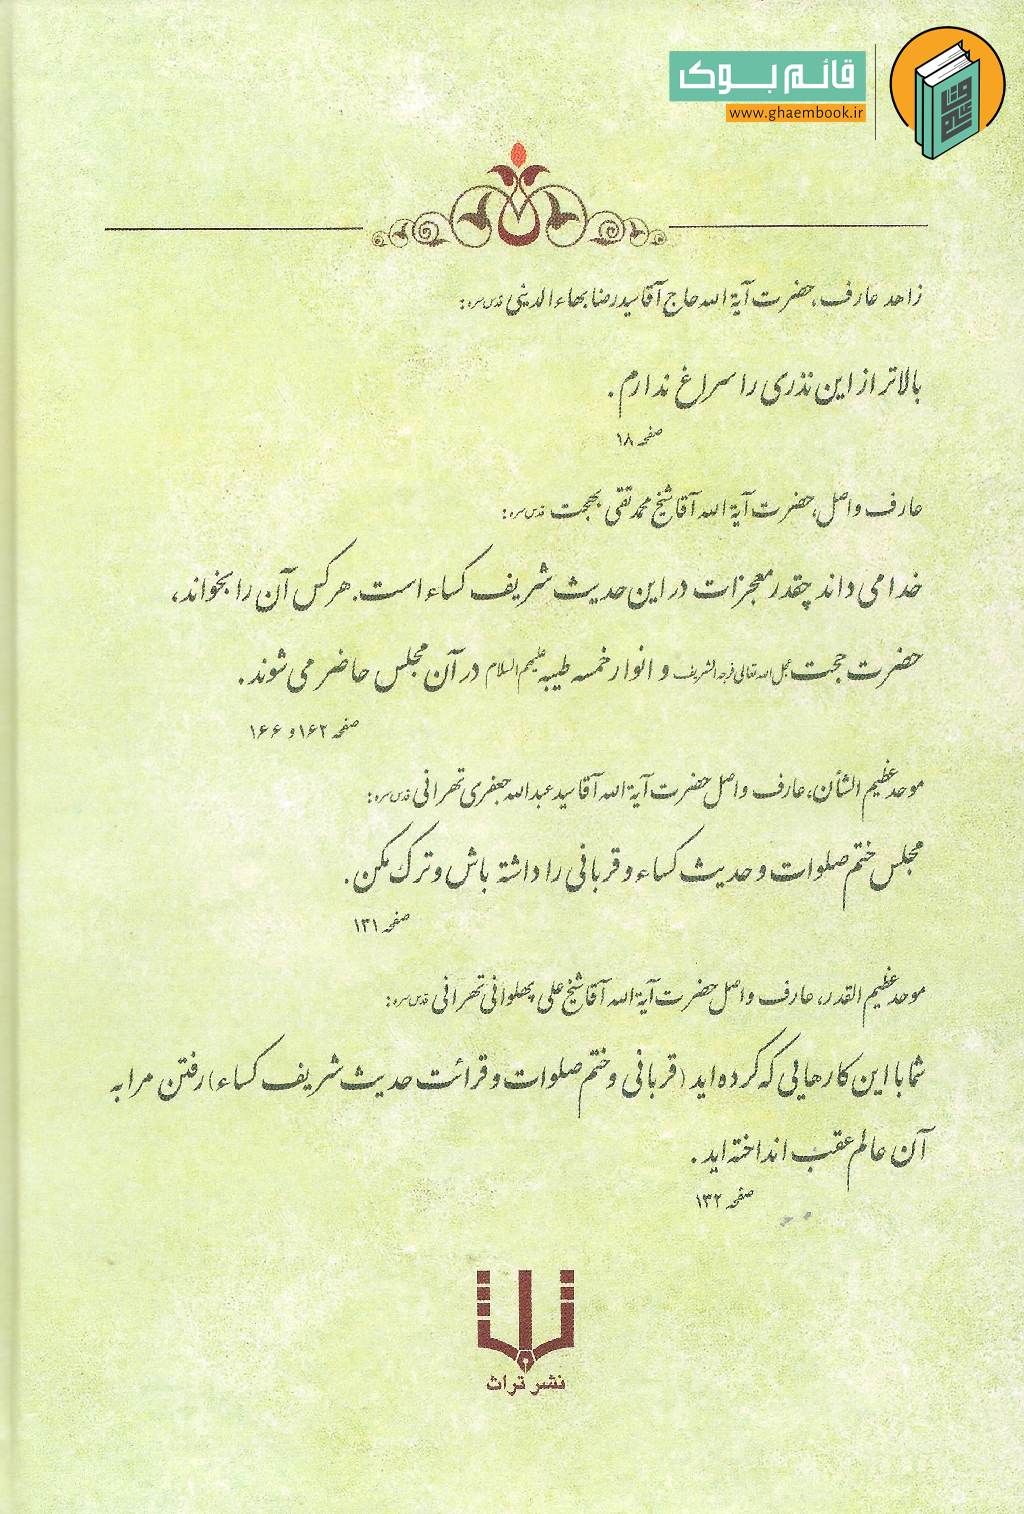 قائم بوک
www.ghaembook.ir
زاهد عارف، حضرت آیة الله حاج آقا سید رضا بهاءالدینی قدس سره:
بالاتر از این نذری را سراغ ندارم.
صفحه ۱۸
عارف واصل، حضرت آیة الله آقا شیخ محمد تقی بهجت قدس سره:
خدا می داند چقدر معجزات در این حدیث شریف کساء است. هر کس آن را بخواند،
حضرت حجت عجل الله تعالی فرجه الشریف و انوار خمسه طیبه علیهم السلام در آن مجلس حاضر می شوند.
صفحه ۱۶۲ و ۱۶۶
موحد عظیم الشأن، عارف واصل حضرت آیة الله آقا سید عبدالله جعفری تهرانی قدس سره:
مجلس ختم صلوات و حدیث کساء و قربانی را داشته باش و ترک مکن.
صفحه ۱۳۱
موحد عظیم القدر، عارف واصل حضرت آیة الله آقا شیخ علی پهلوانی تهرانی قدس سره:
شما با این کارهایی که کرده اید (قربانی و ختم صلوات و قرائت حدیث شریف کساء) رفتن مرا به
آن عالم عقب انداخته اید.
صفحه ۱۳۲
نشر تراث